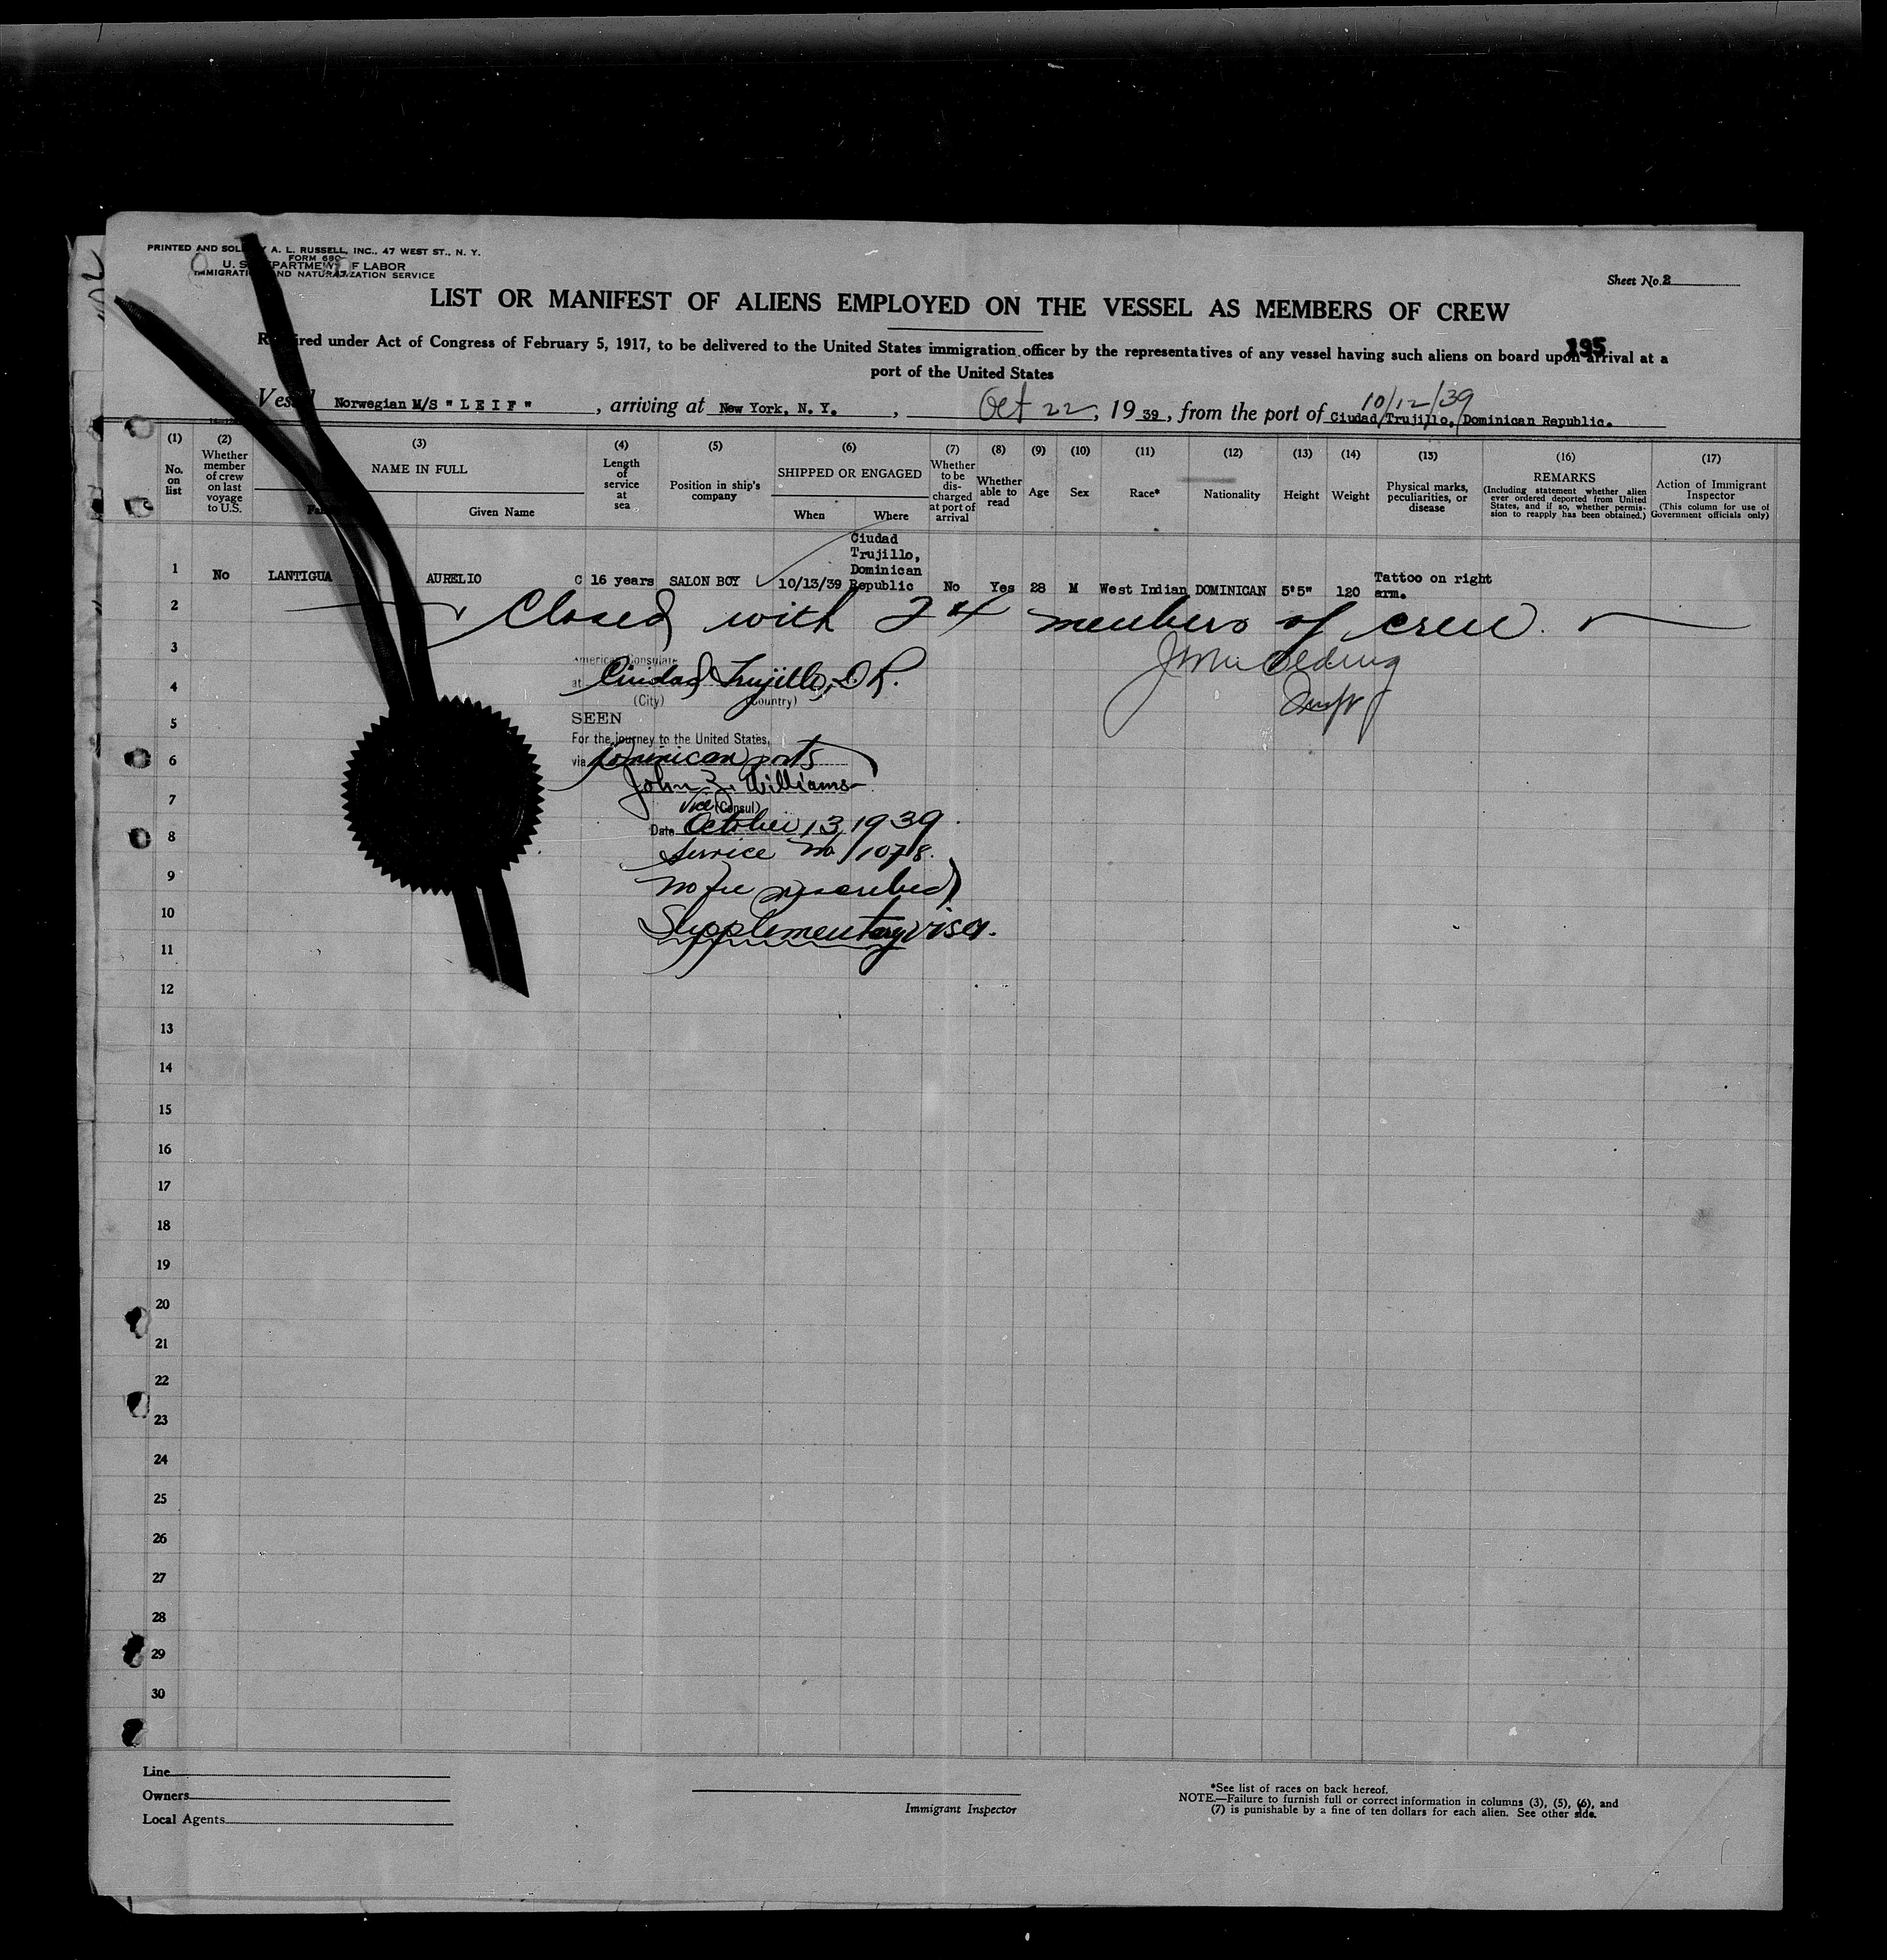 PRINTED AND SOLD BY A. L. RUSSELL, INC., 47 WEST ST., N. Y.
FORM 680
U. S. DEPARTMENT OF LABOR
IMMIGRATION AND NATURALIZATION SERVICE
Sheet No. 2
LIST OR MANIFEST OF ALIENS EMPLOYED ON THE VESSEL AS MEMBERS OF CREW
195
Required under Act of Congress of February 5, 1917, to be delivered to the United States immigration officer by the representatives of any vessel having such aliens on board upon arrival at a
port of the United States
10/12/39
Vessel Norwegian M/S "L E I F", arriving at New York, N. Y., Oct 22, 19 39, from the port of Ciudad Trujillo, Dominican Republic.
(1) No. on list
(2) Whether member of crew on last voyage to U.S.
(3) NAME IN FULL
Given Name
(4) Length of service at sea
(5) Position in ship's company
(6) SHIPPED OR ENGAGED
When Where
(7) Whether to be discharged at port of arrival
(8) Whether able to read
(9) Age
(10) Sex
(11) Race*
(12) Nationality
(13) Height
(14) Weight
(15) Physical marks, peculiarities, or disease
(16) REMARKS
(Including statement whether alien ever ordered deported from United States, and if so, whether permission to reapply has been obtained.)
(17) Action of Immigrant Inspector
(This column for use of Government officials only)
1 No LANTIGUA AURELIO C 16 years SALON BOY 10/13/39 Ciudad Trujillo, Dominican Republic No Yes 28 M West Indian DOMINICAN 5'5" 120 Tattoo on right arm.
2 Closed with 24 members of crew.
3
American Consulate
4
at Ciudad Trujillo, D. R.
(City) (Country)
5
SEEN
For the journey to the United States,
6
via Dominican ports
John Z. Williams
7
Vice (Consul)
Date October 13, 1939.
8
Service No. 1078.
9
No fee prescribed
10
Supplementary visa.
11
12
13
14
15
16
17
18
19
20
21
22
23
24
25
26
27
28
29
30
Line
Owners
Local Agents
Immigrant Inspector
*See list of races on back hereof.
NOTE.—Failure to furnish full or correct information in columns (3), (5), (6), and
(7) is punishable by a fine of ten dollars for each alien. See other side.